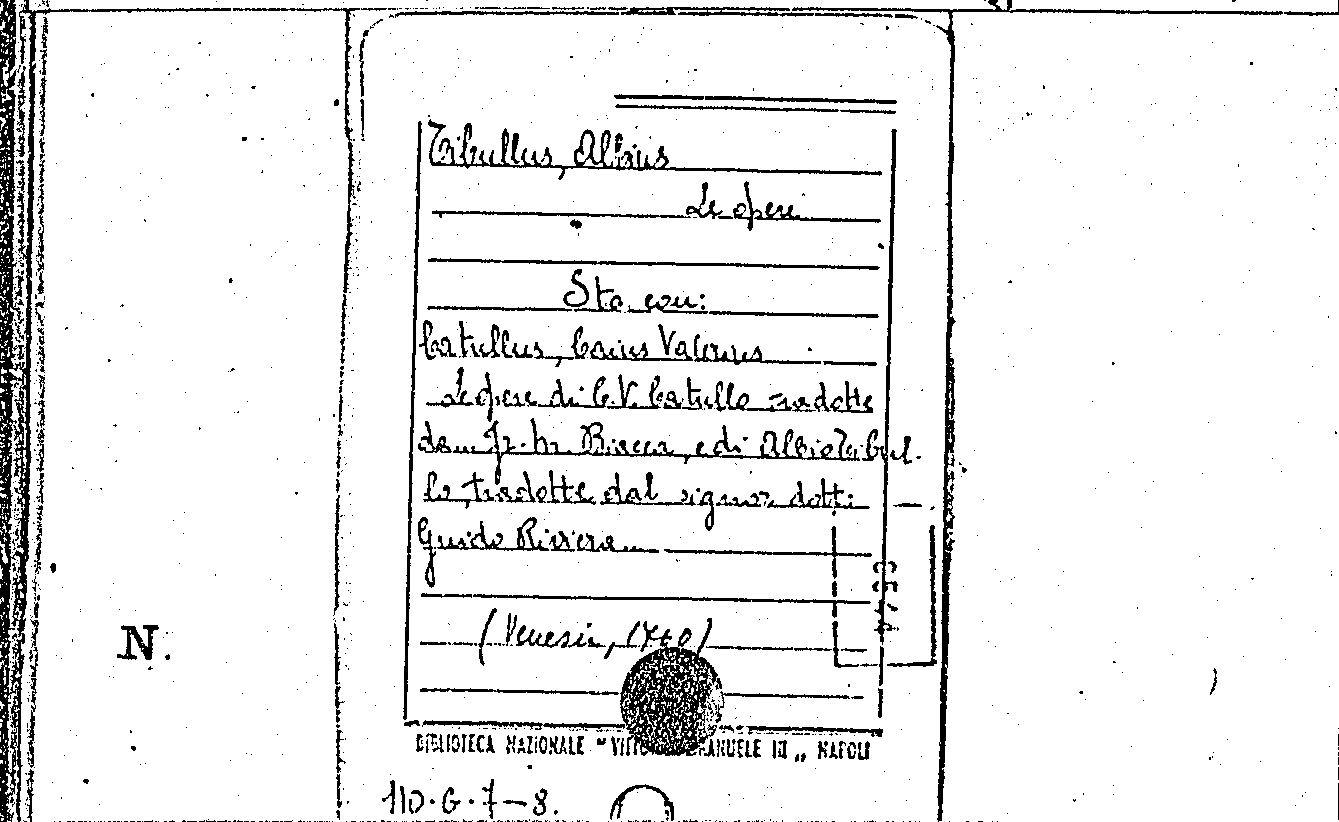 Tibullus, Albius
Le opere
Sta con:
Catullus, Caius Valerius
Le opere di C.V. Catullo tradotte
da Fr. M. Biacca, e di Albio Tibul-
lo, tradotte dal signor dott.
Guido Riviera
(Venezia, 1740)
BIBLIOTECA NAZIONALE "VITTORIO EMANUELE III" NAPOLI
110.G.7-8.
N.